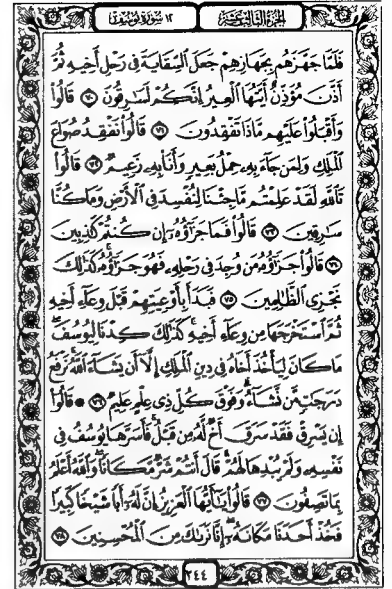 الجزء الثالث عشر ١٢ سورة يوسف
فَلَمَّا جَهَّزَهُم بِجَهَازِهِمْ جَعَلَ ٱلسِّقَايَةَ فِى رَحْلِ أَخِيهِ ثُمَّ
أَذَّنَ مُؤَذِّنٌ أَيَّتُهَا ٱلْعِيرُ إِنَّكُمْ لَسَٰرِقُونَ ٧٠ قَالُوا۟
وَأَقْبَلُوا۟ عَلَيْهِم مَّاذَا تَفْقِدُونَ ٧١ قَالُوا۟ نَفْقِدُ صُوَاعَ
ٱلْمَلِكِ وَلِمَن جَآءَ بِهِۦ حِمْلُ بَعِيرٍ وَأَنَا۠ بِهِۦ زَعِيمٌ ٧٢ قَالُوا۟
تَٱللَّهِ لَقَدْ عَلِمْتُم مَّا جِئْنَا لِنُفْسِدَ فِى ٱلْأَرْضِ وَمَا كُنَّا
سَٰرِقِينَ ٧٣ قَالُوا۟ فَمَا جَزَٰٓؤُهُۥٓ إِن كُنتُمْ كَٰذِبِينَ
٧٤ قَالُوا۟ جَزَٰٓؤُهُۥ مَن وُجِدَ فِى رَحْلِهِۦ فَهُوَ جَزَٰٓؤُهُۥ كَذَٰلِكَ
نَجْزِى ٱلظَّٰلِمِينَ ٧٥ فَبَدَأَ بِأَوْعِيَتِهِمْ قَبْلَ وِعَآءِ أَخِيهِ
ثُمَّ ٱسْتَخْرَجَهَا مِن وِعَآءِ أَخِيهِ كَذَٰلِكَ كِدْنَا لِيُوسُفَ
مَا كَانَ لِيَأْخُذَ أَخَاهُ فِى دِينِ ٱلْمَلِكِ إِلَّآ أَن يَشَآءَ ٱللَّهُ نَرْفَعُ
دَرَجَٰتٍ مَّن نَّشَآءُ وَفَوْقَ كُلِّ ذِى عِلْمٍ عَلِيمٌ ٧٦ ۞ قَالُوٓا۟
إِن يَسْرِقْ فَقَدْ سَرَقَ أَخٌ لَّهُۥ مِن قَبْلُ فَأَسَرَّهَا يُوسُفُ فِى
نَفْسِهِۦ وَلَمْ يُبْدِهَا لَهُمْ قَالَ أَنتُمْ شَرٌّ مَّكَانًا وَٱللَّهُ أَعْلَمُ
بِمَا تَصِفُونَ ٧٧ قَالُوا۟ يَٰٓأَيُّهَا ٱلْعَزِيزُ إِنَّ لَهُۥٓ أَبًا شَيْخًا كَبِيرًا
فَخُذْ أَحَدَنَا مَكَانَهُۥٓ إِنَّا نَرَىٰكَ مِنَ ٱلْمُحْسِنِينَ ٧٨
٢٤٤